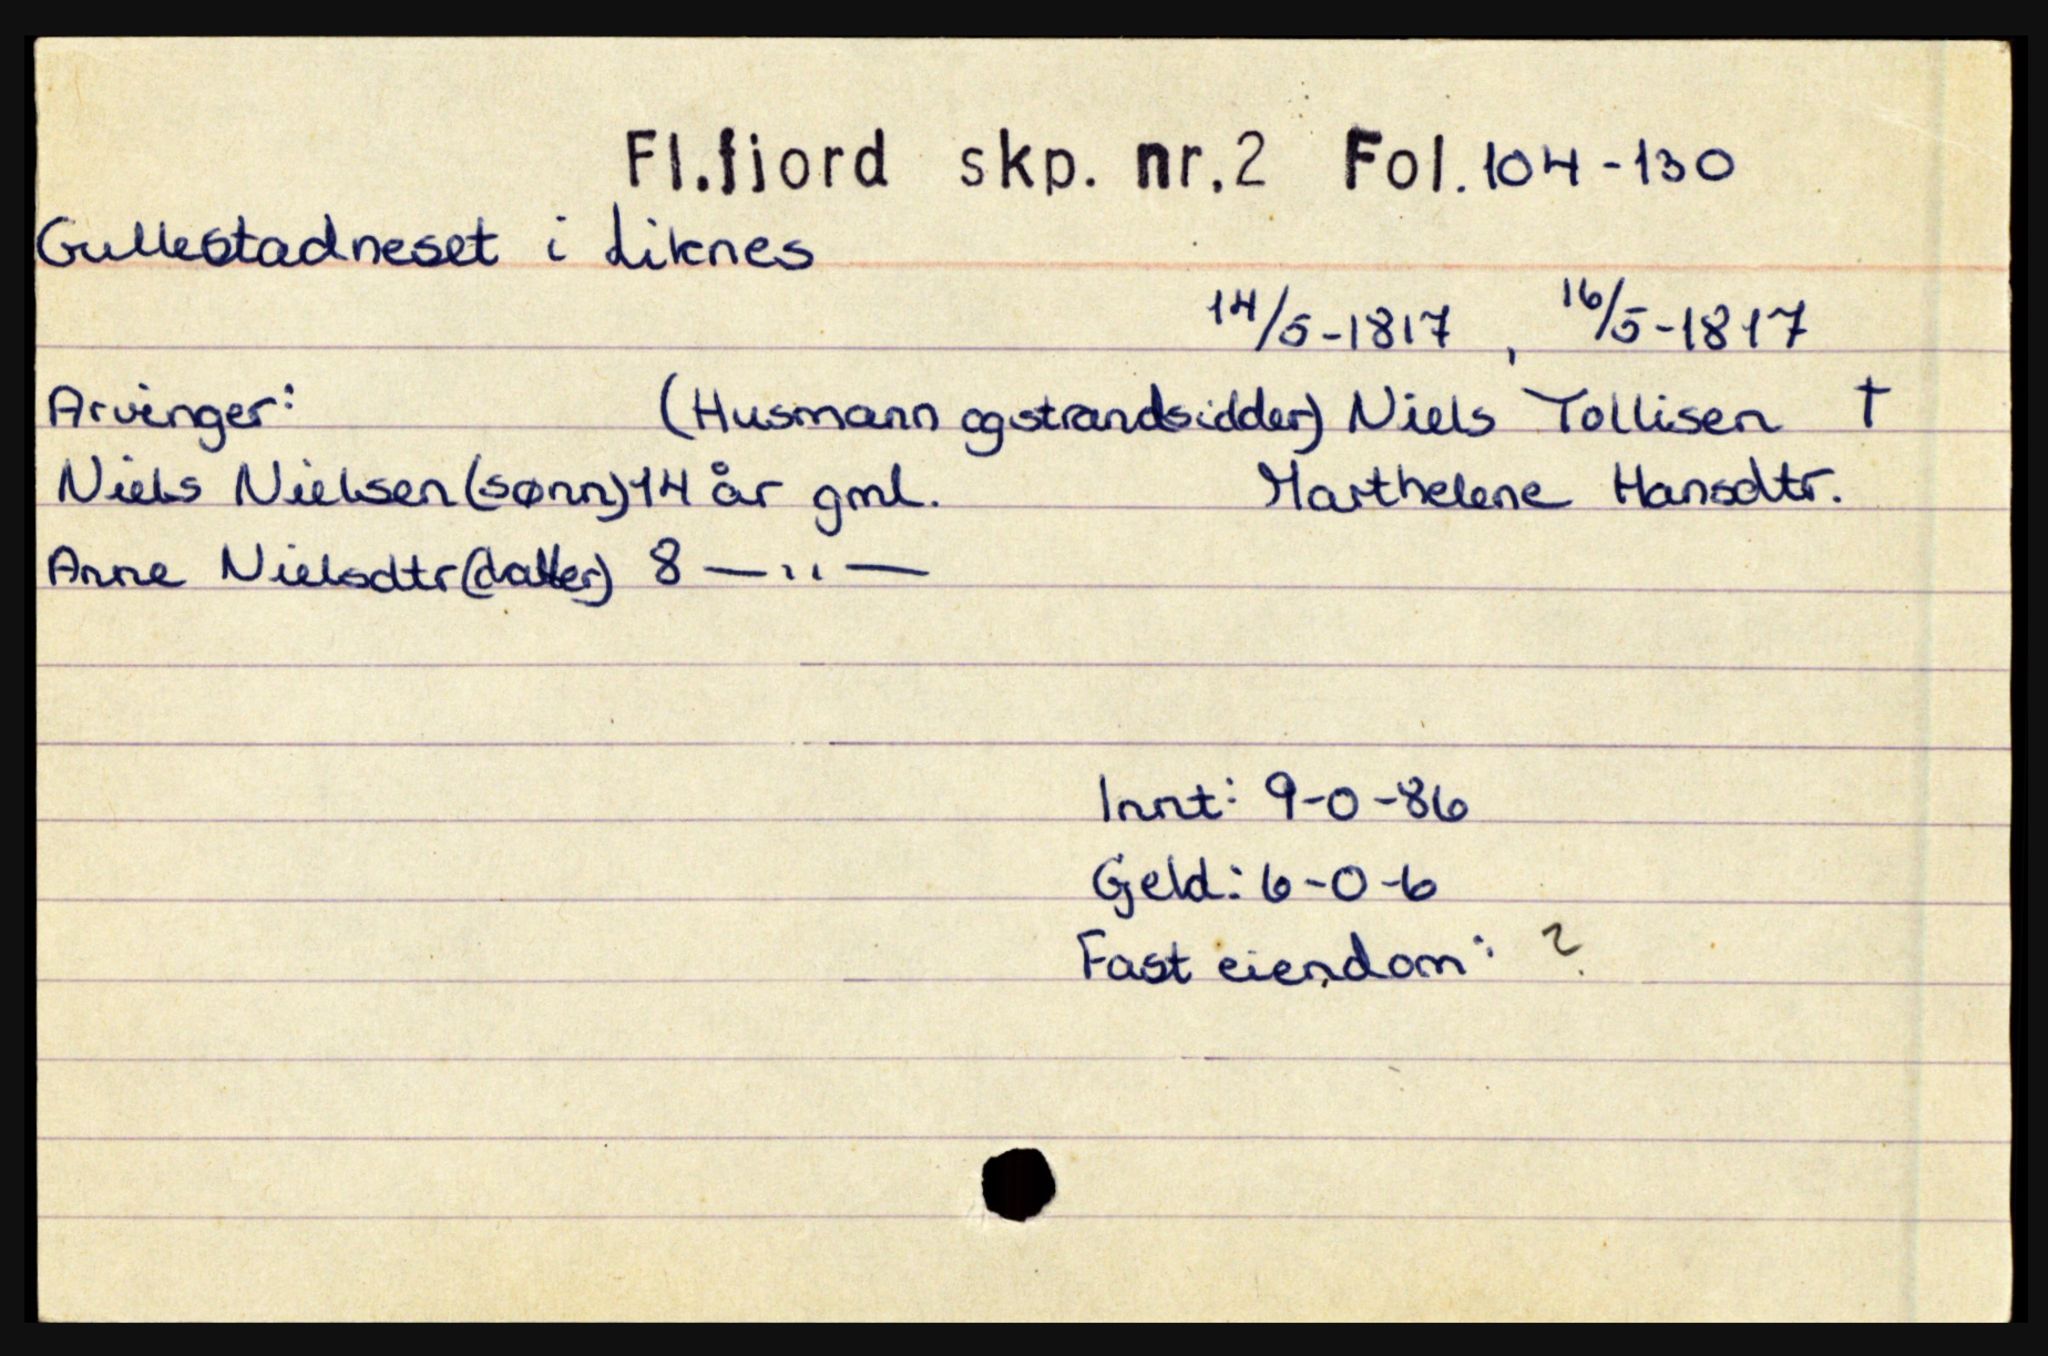 Fl.fjord skp. nr.2 Fol. 104-130
Gullestadneset i Liknes
14/5-1817, 16/5-1817
Arvinger: (Husmann og strandsidder) Niels Tollisen †
Niels Nielsen (sønn) 14 år gml. Marthelene Hansdtr.
Anne Nielsdtr (datter) 8 —"—
Innt: 9-0-86
Gjeld: 6-0-6
Fast eiendom: ?